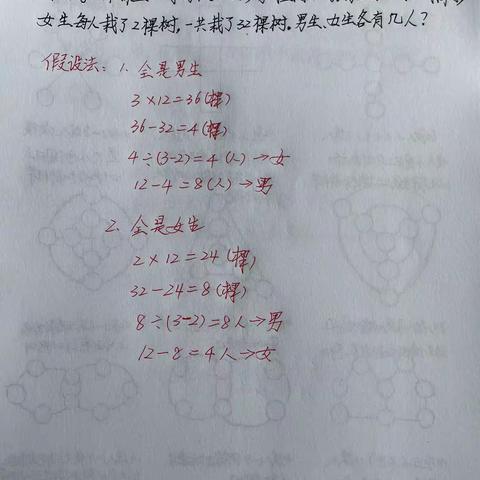 女生每人栽了2棵树,一共栽了32棵树。男生、女生各有几人?
假设法: 1. 全是男生
3×12=36(棵)
36-32=4(棵)
4÷(3-2)=4(人)→女
12-4=8(人)→男
2. 全是女生
2×12=24(棵)
32-24=8(棵)
8÷(3-2)=8人→男
12-8=4人→女